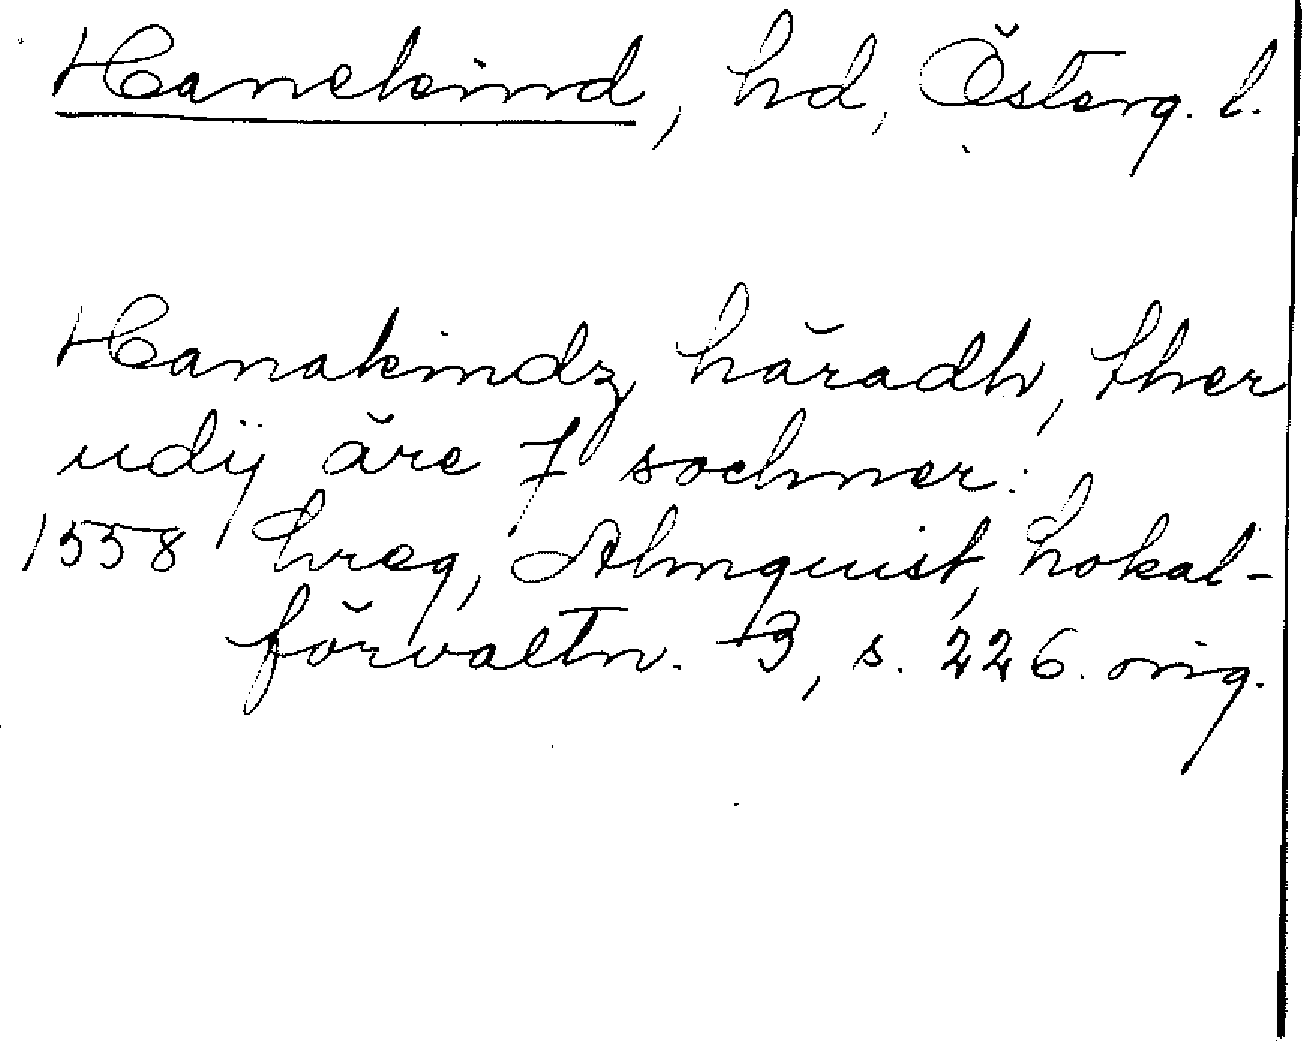 Hanekind, hd, Österg. l.
Hanakindz häradh, ther
udij äre 7 sochner:
1558 hreg, Almquist, Lokal-
förvaltn. 3, s. 226. orig.